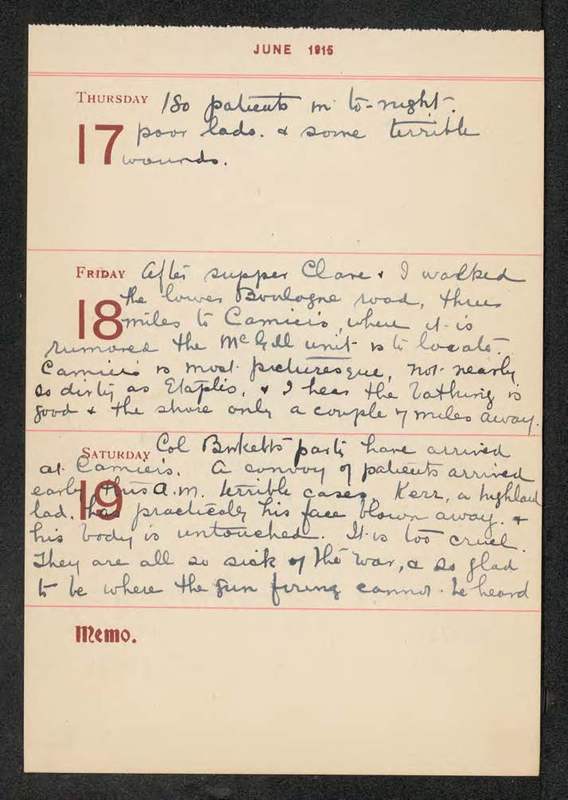 JUNE 1915
THURSDAY 180 patients in to-night.
17 poor lads. & some terrible
wounds.
FRIDAY After supper Clare & I walked
18 the lower Boulogne road, three
miles to Camieis, where it is
rumored the McGill unit is to locate.
Camieis is most picturesque, not nearly
so dirty as Etaples, & I hear the bathing is
good & the shore only a couple of miles away.
SATURDAY Col Birketts party have arrived
at Camieis. A convoy of patients arrived
19 early this a.m. terrible cases. Kerr, a highland
lad. has practically his face blown away. &
his body is untouched. It is too cruel.
They are all so sick of the war, & so glad
to be where the gun firing cannot be heard
Memo.